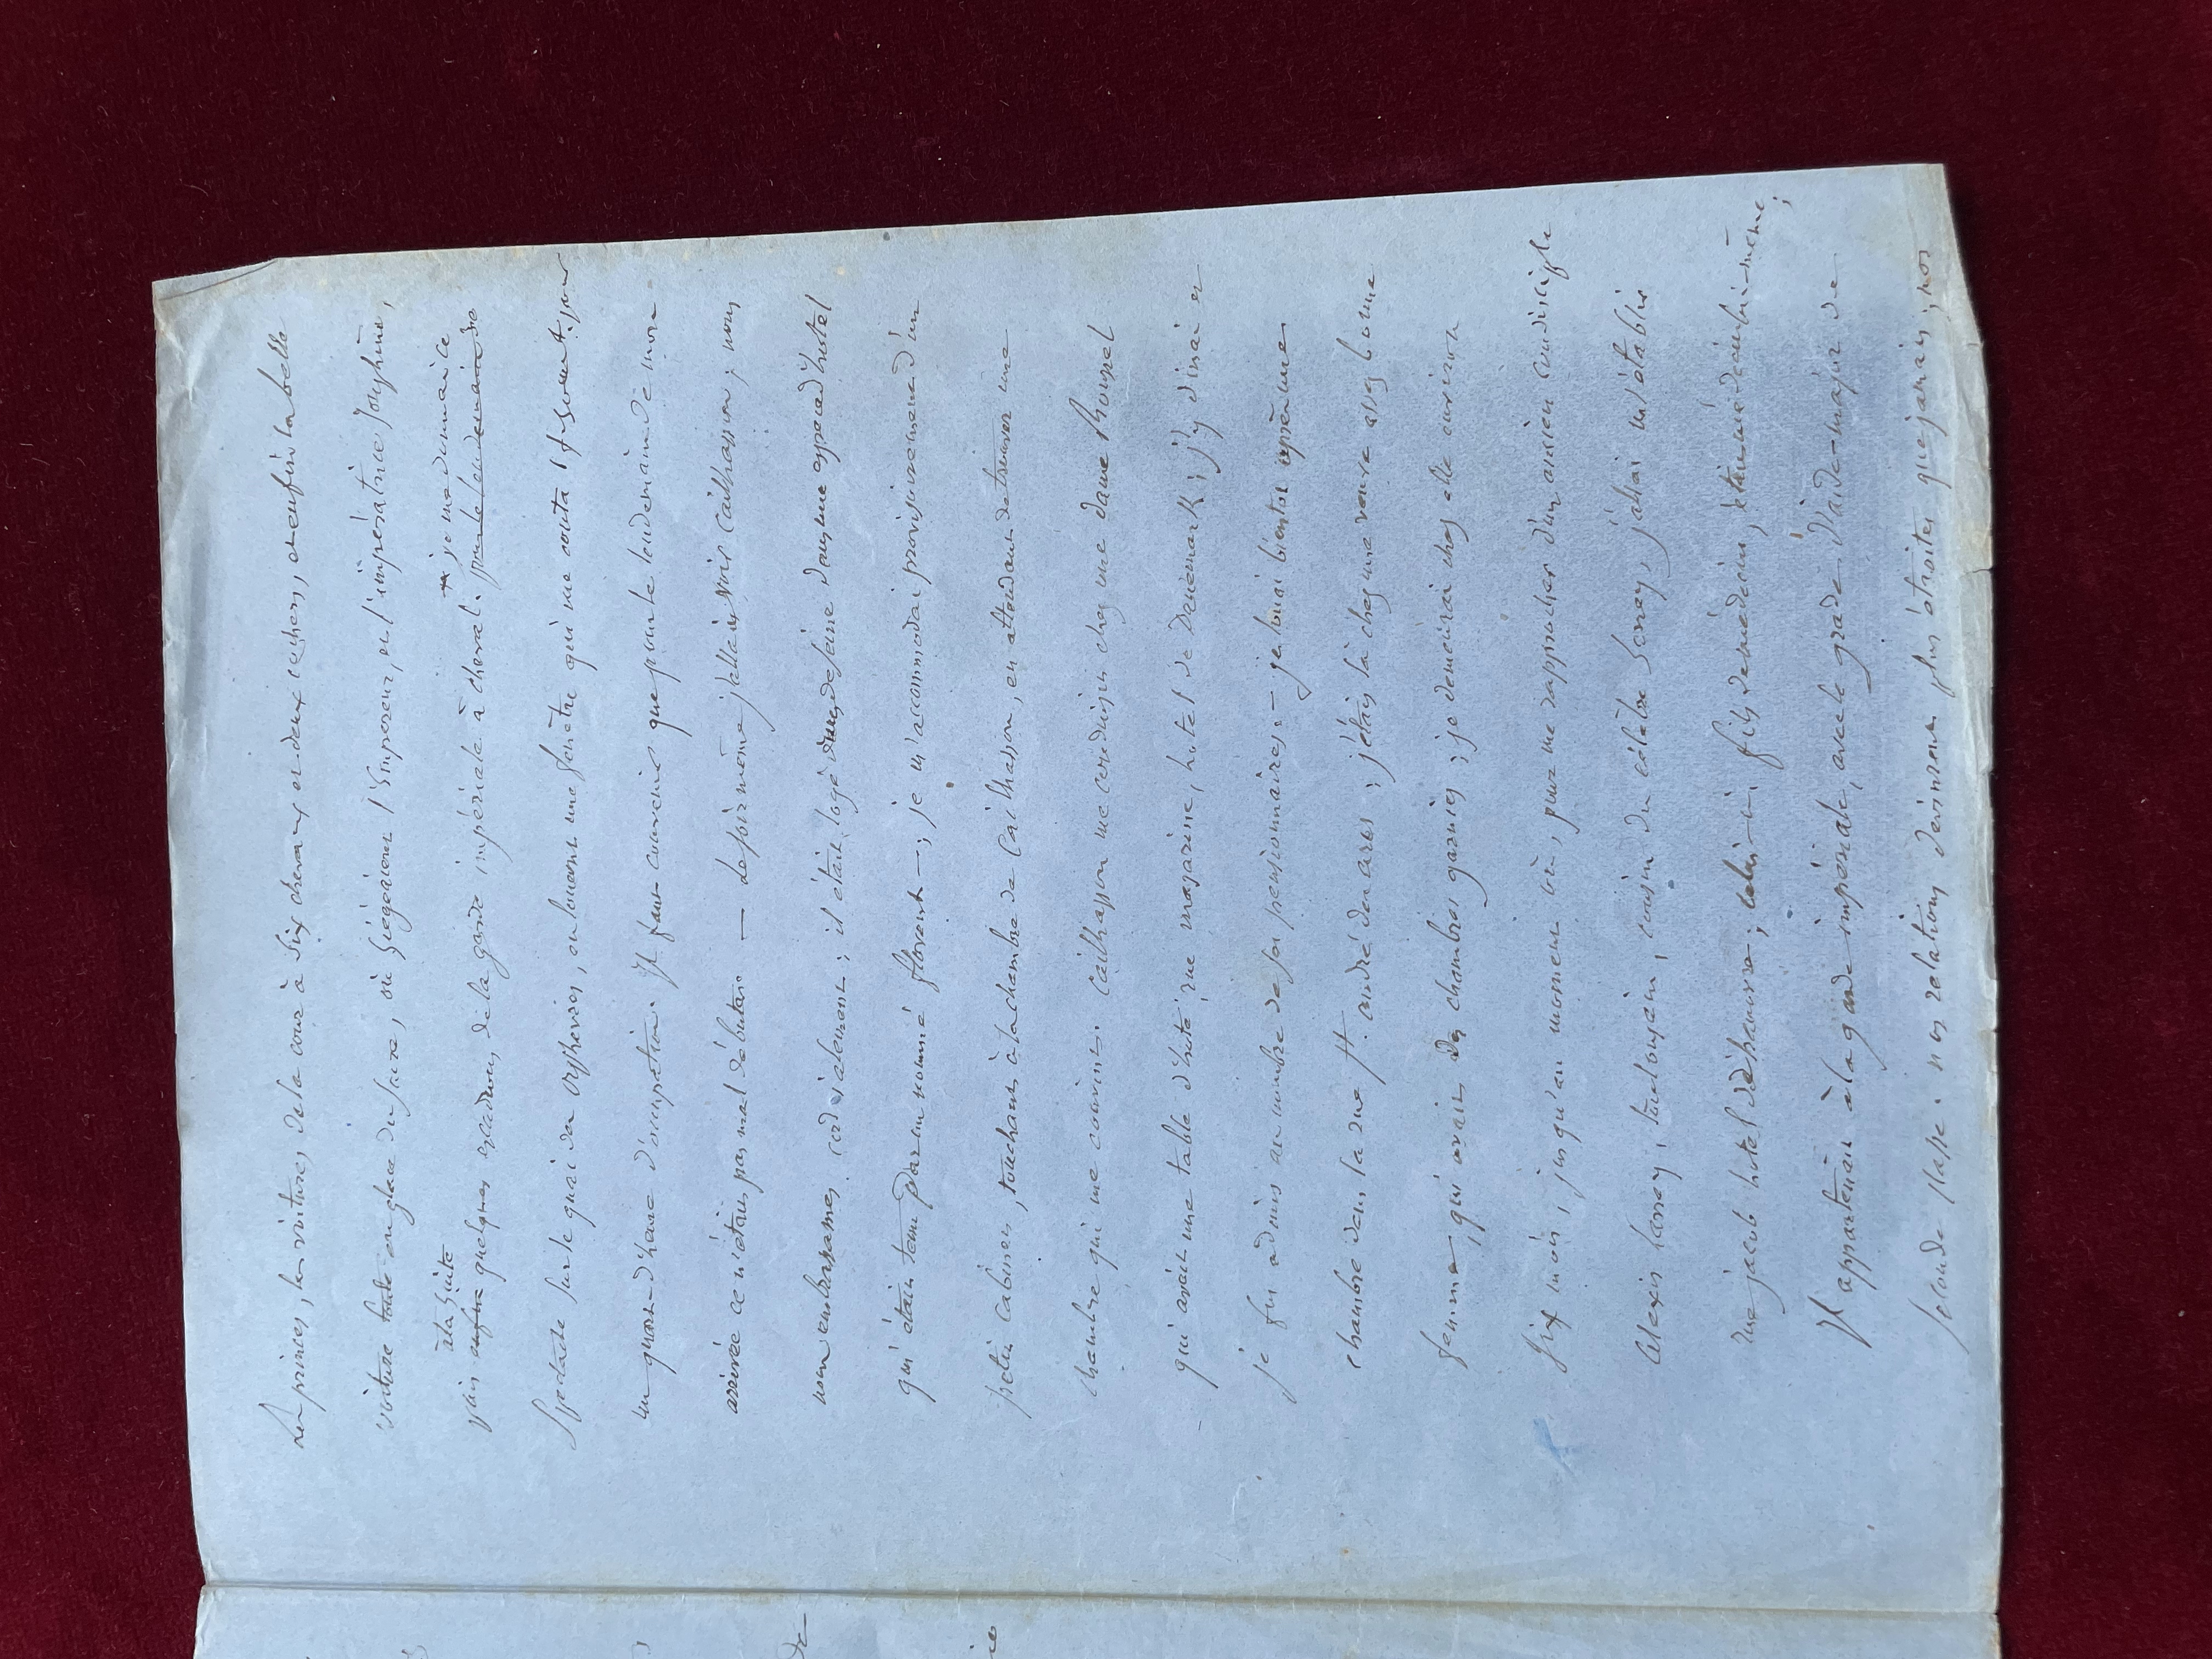 Les princes, les voitures de la cour à six chevaux et deux cochers, et enfin la belle
voiture toute en glace du sacre, où siégeaient l'Empereur, et l'impératrice Joséphine,
à la suite je me donnai ce
puis enfin quelques escadrons de la garde impériale à cheval. pour le lendemain de
Spectacle sur le quai des orphèvres, en louant une fenêtre qui me couta 15 f. seulement. pour
un quart d'heure d'occupation. Il faut convenir que pour le lendemain de mon
arrivée ce n'était pas mal débuter. — Le soir même j'allais voir Cailhasson; nous
nous embrassames cordialement; il était logé dans une espèce d'hotel
qui était tenu par un nommé florent —; je m'accommodai provisoirement d'un
petit cabinet, touchant à la chambre de Cailhasson, en attendant de trouver une
chambre qui me convint. Cailhasson me conduisit chez une dame Rouzel
qui avait une table d'hote, rue mazarine, hotel de Danemark; j'y dinai et
je fus admis au nombre de ses pensionnaires. — je louai bientot après une
chambre dans la rue St. andré des arts; j'étais là chez une veuve assez bonne
femme, qui avait des chambres garnies; je demeurai chez elle environ
six mois, jusqu'au moment où, pour me rapprocher d'un ancien condisciple
Alexis Larrey, toulousain, cousin du célèbre Larrey, j'allai m'établir
rue jacob hotel d'; celui-ci, fils de médecin, était médecin lui-même;
Il appartenait à la garde impériale, avec le grade d'aide-major de
seconde classe. nos relations devinrent plus étroites que jamais; nos